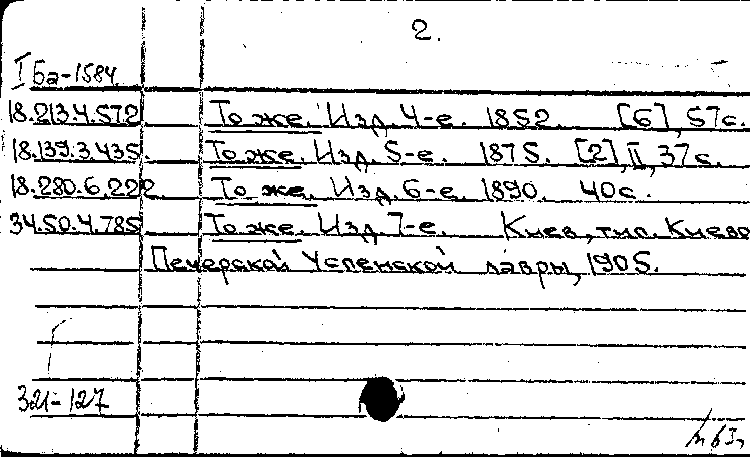 2.
I Ба-1584
18.213.4.572 То же. Изд. 4-е. 1852. [6], 57с.
18.139.3.435. То же. Изд. 5-е. 1875. [2], II, 37с.
18.280.6.222. То же. Изд. 6-е. 1890. 40с.
34.50.4.785 То же. Изд. 7-е. Киев, тип. Киево
Печерской Успенской лавры, 1905.
321-127